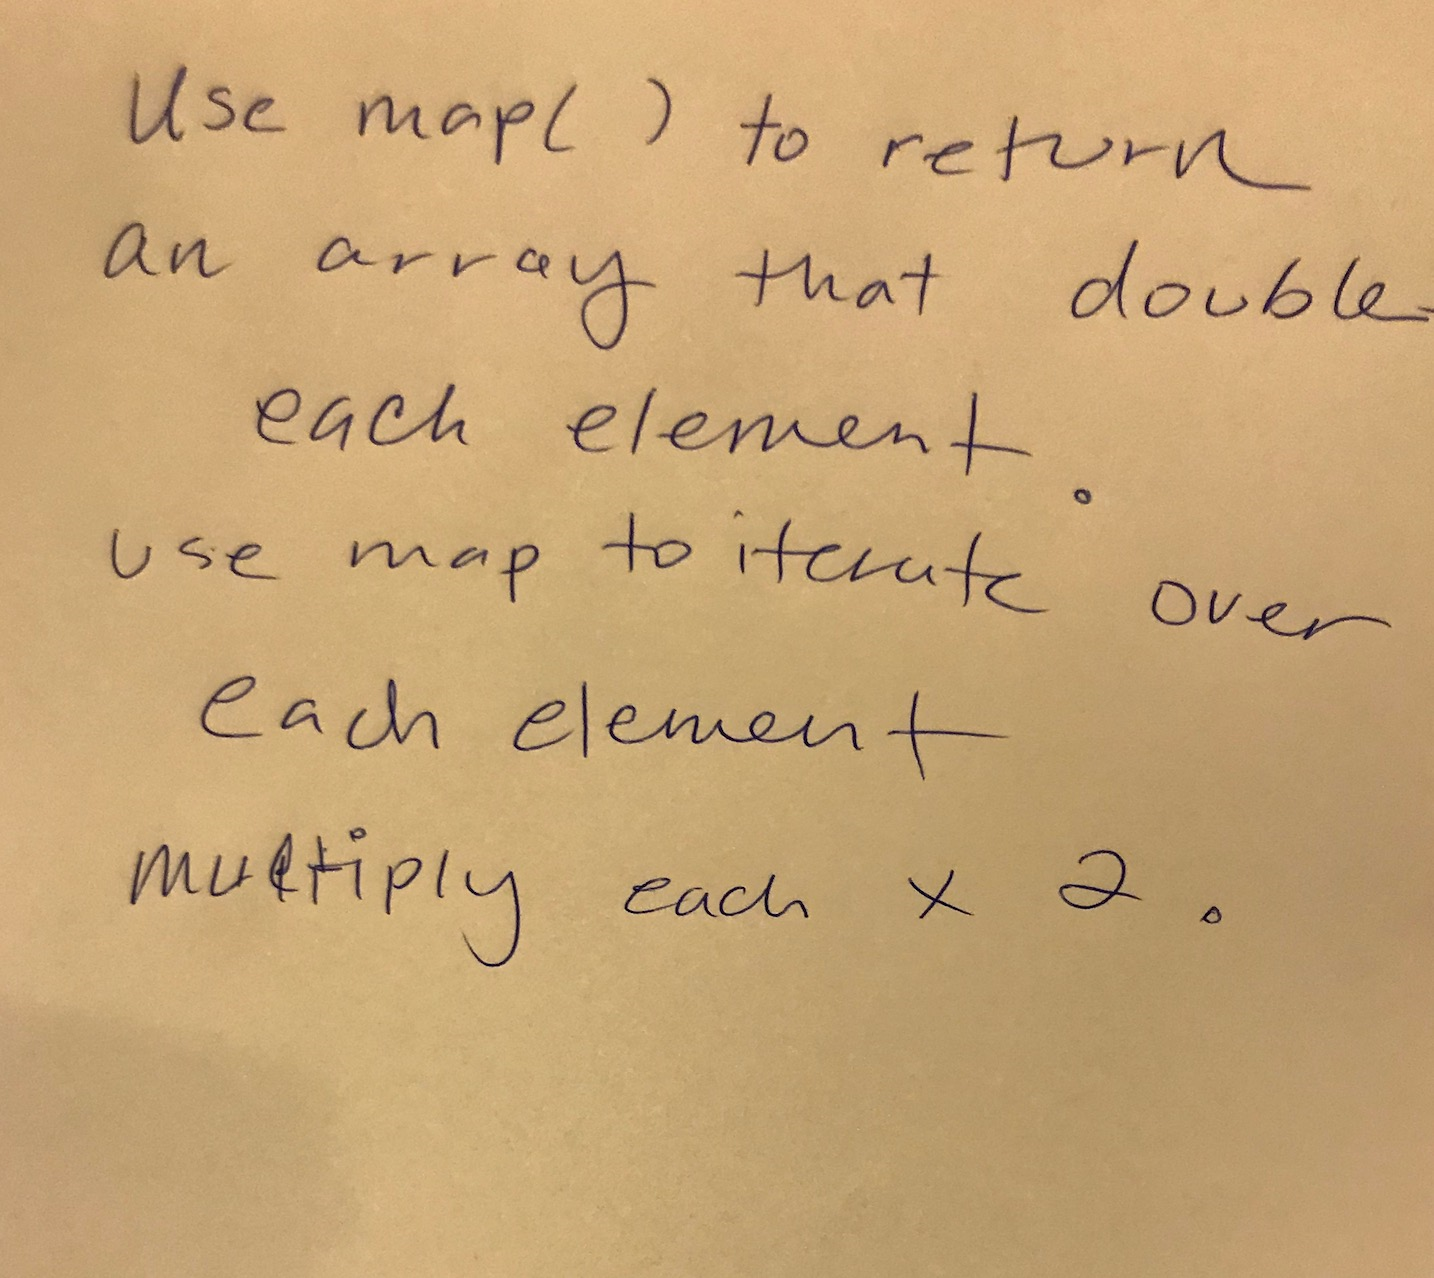 Use map( ) to return
an array that double
each element.
use map to iterate over
each element
multiply each x 2.